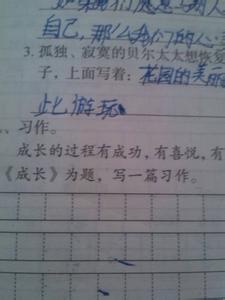 自己,那么我们的人
3. 孤独、寂寞的贝尔太太想恢复
子，上面写着：花园的美丽
此游玩
、习作。
成长的过程有成功，有喜悦，有
《成长》为题，写一篇习作。